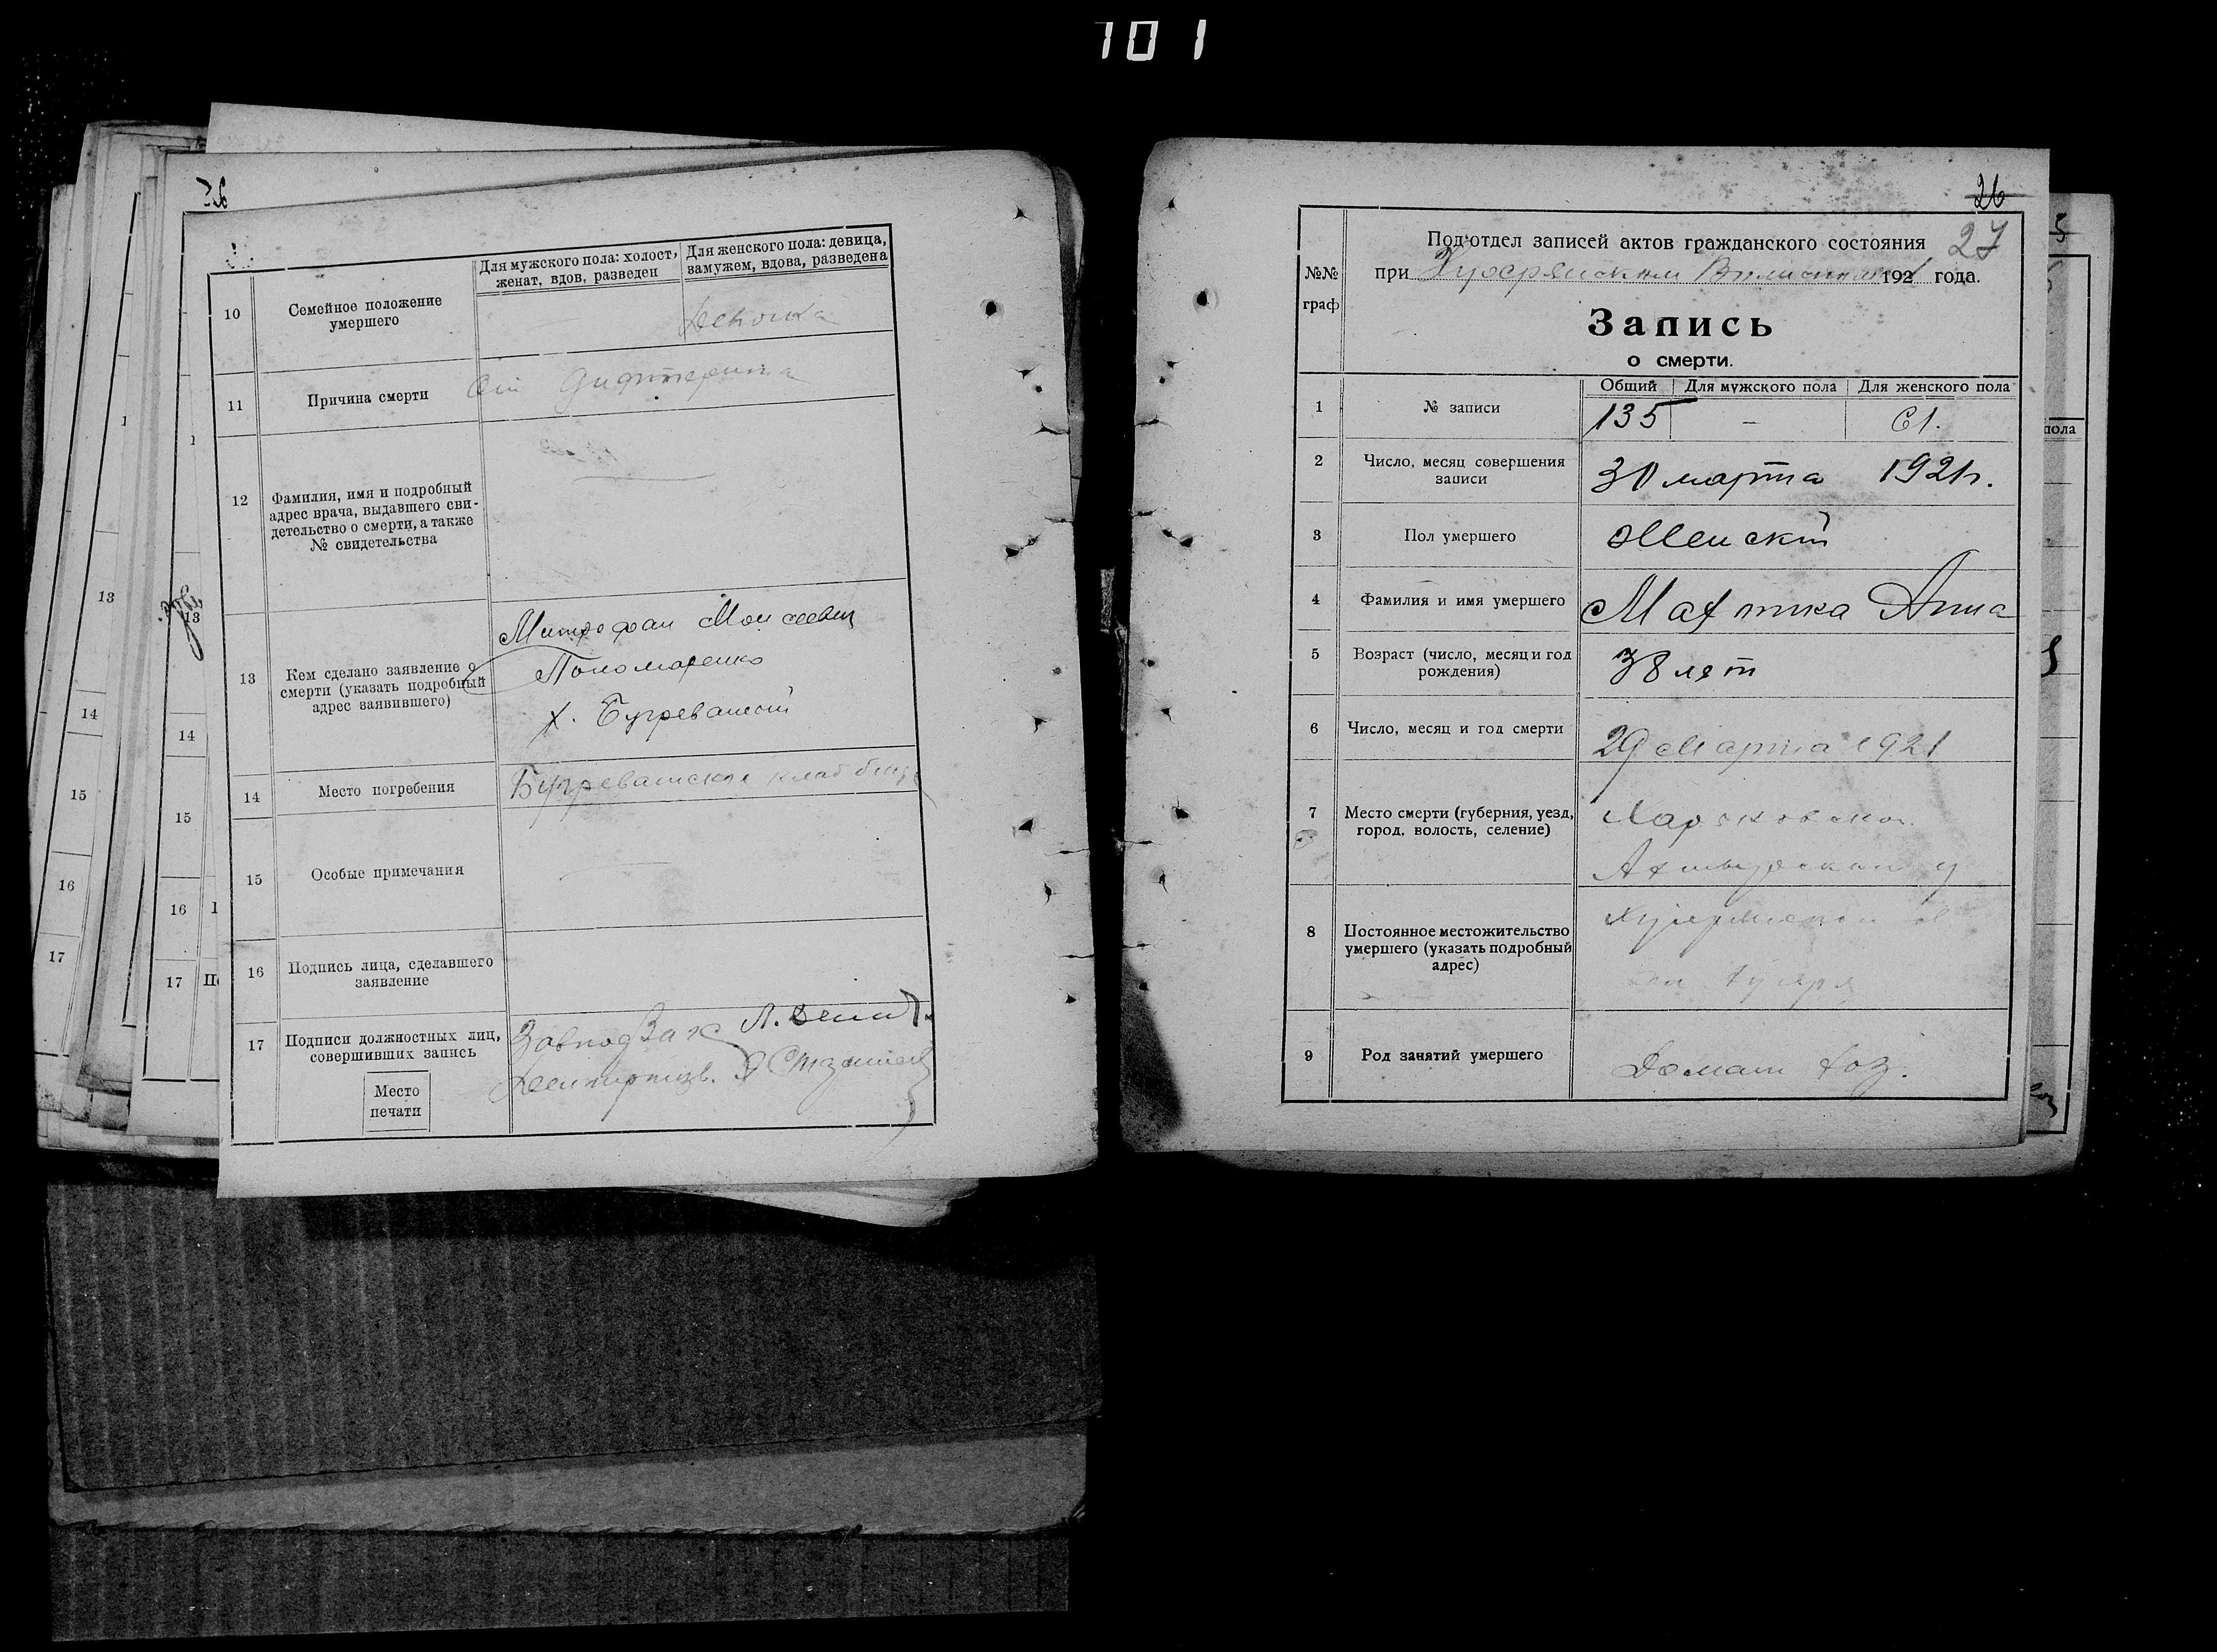 101
26
Для мужского пола: холост, женат, вдов, разведен
Для женского пола: девица, замужем, вдова, разведена
10
Семейное положение умершего
Девочка
11
Причина смерти
От дифтерита
12
Фамилия, имя и подробный адрес врача, выдавшего свидетельство о смерти, а также № свидетельства
13
Кем сделано заявление о смерти (указать подробный адрес заявившего)
Митрофан Моисеевич
Пономаренко
х. Бугреватий
14
Место погребения
Бугреватское кладбище
15
Особые примечания
16
Подпись лица, сделавшего заявление
17
Подписи должностных лиц, совершивших запись
ЗавподЗагс
Место печати
1
13
14
15
16
17
13
14
15
16
17
26
27
№№ граф
Подотдел записей актов гражданского состояния
при 1921 года.
Запись
о смерти.
Общий
Для мужского пола
Для женского пола
1
№ записи
135
-
61.
2
Число, месяц совершения записи
30 марта 1921г.
3
Пол умершего
Женский
4
Фамилия и имя умершего
Махтика Анна
5
Возраст (число, месяц и год рождения)
38 лет
6
Число, месяц и год смерти
29 Марта 1921
7
Место смерти (губерния, уезд, город, волость, селение)
Харьковской
Ахтырский у
8
Постоянное местожительство умершего (указать подробный адрес)
9
Род занятий умершего
Домаш хоз.
пола